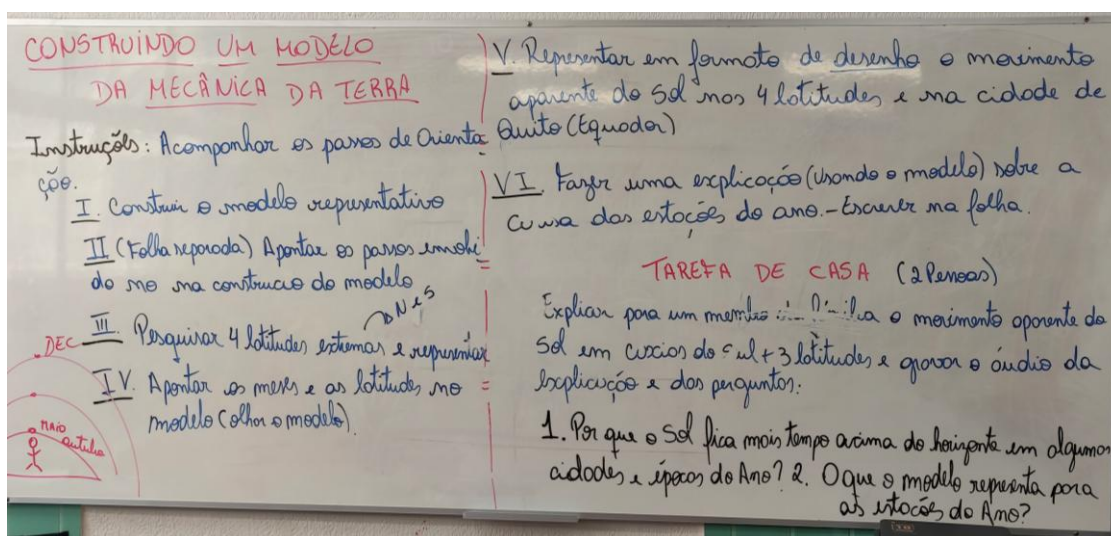 CONSTRUINDO UM MODELO
DA MECÂNICA DA TERRA
Instruções: Acompanhar os passos de Orienta
ção.
I. Construir o modelo representativo
II (Folha separada) Apontar os passos envolvi
do no na construcao do modelo
N e S
III. Pesquisar 4 latitudes extremas e representar
IV. Apontar os meses e as latitudes no
modelo (olhar o modelo).
DEC
MAIO
V. Representar em formato de desenho o movimento
aparente do Sol nos 4 latitudes e na cidade de
Quito (Equador)
VI. Fazer uma explicação (usando o modelo) sobre a
causa das estações do ano. - Escrever na folha.
TAREFA DE CASA (2 Pessoas)
Explicar para um membro o movimento aparente do
Sol em do Sul + 3 latitudes e gravar o áudio da
explicação e das perguntas:
1. Por que o Sol fica mais tempo acima do horizonte em algumas
cidades e épocas do Ano? 2. O que o modelo representa para
as estações do Ano?